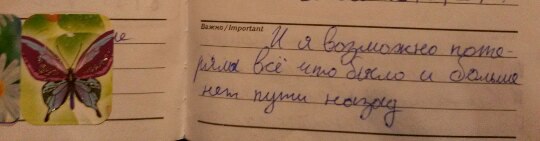 Важно / Important
И я возможно поте-
ряла всё что было и больше
нет пути назад